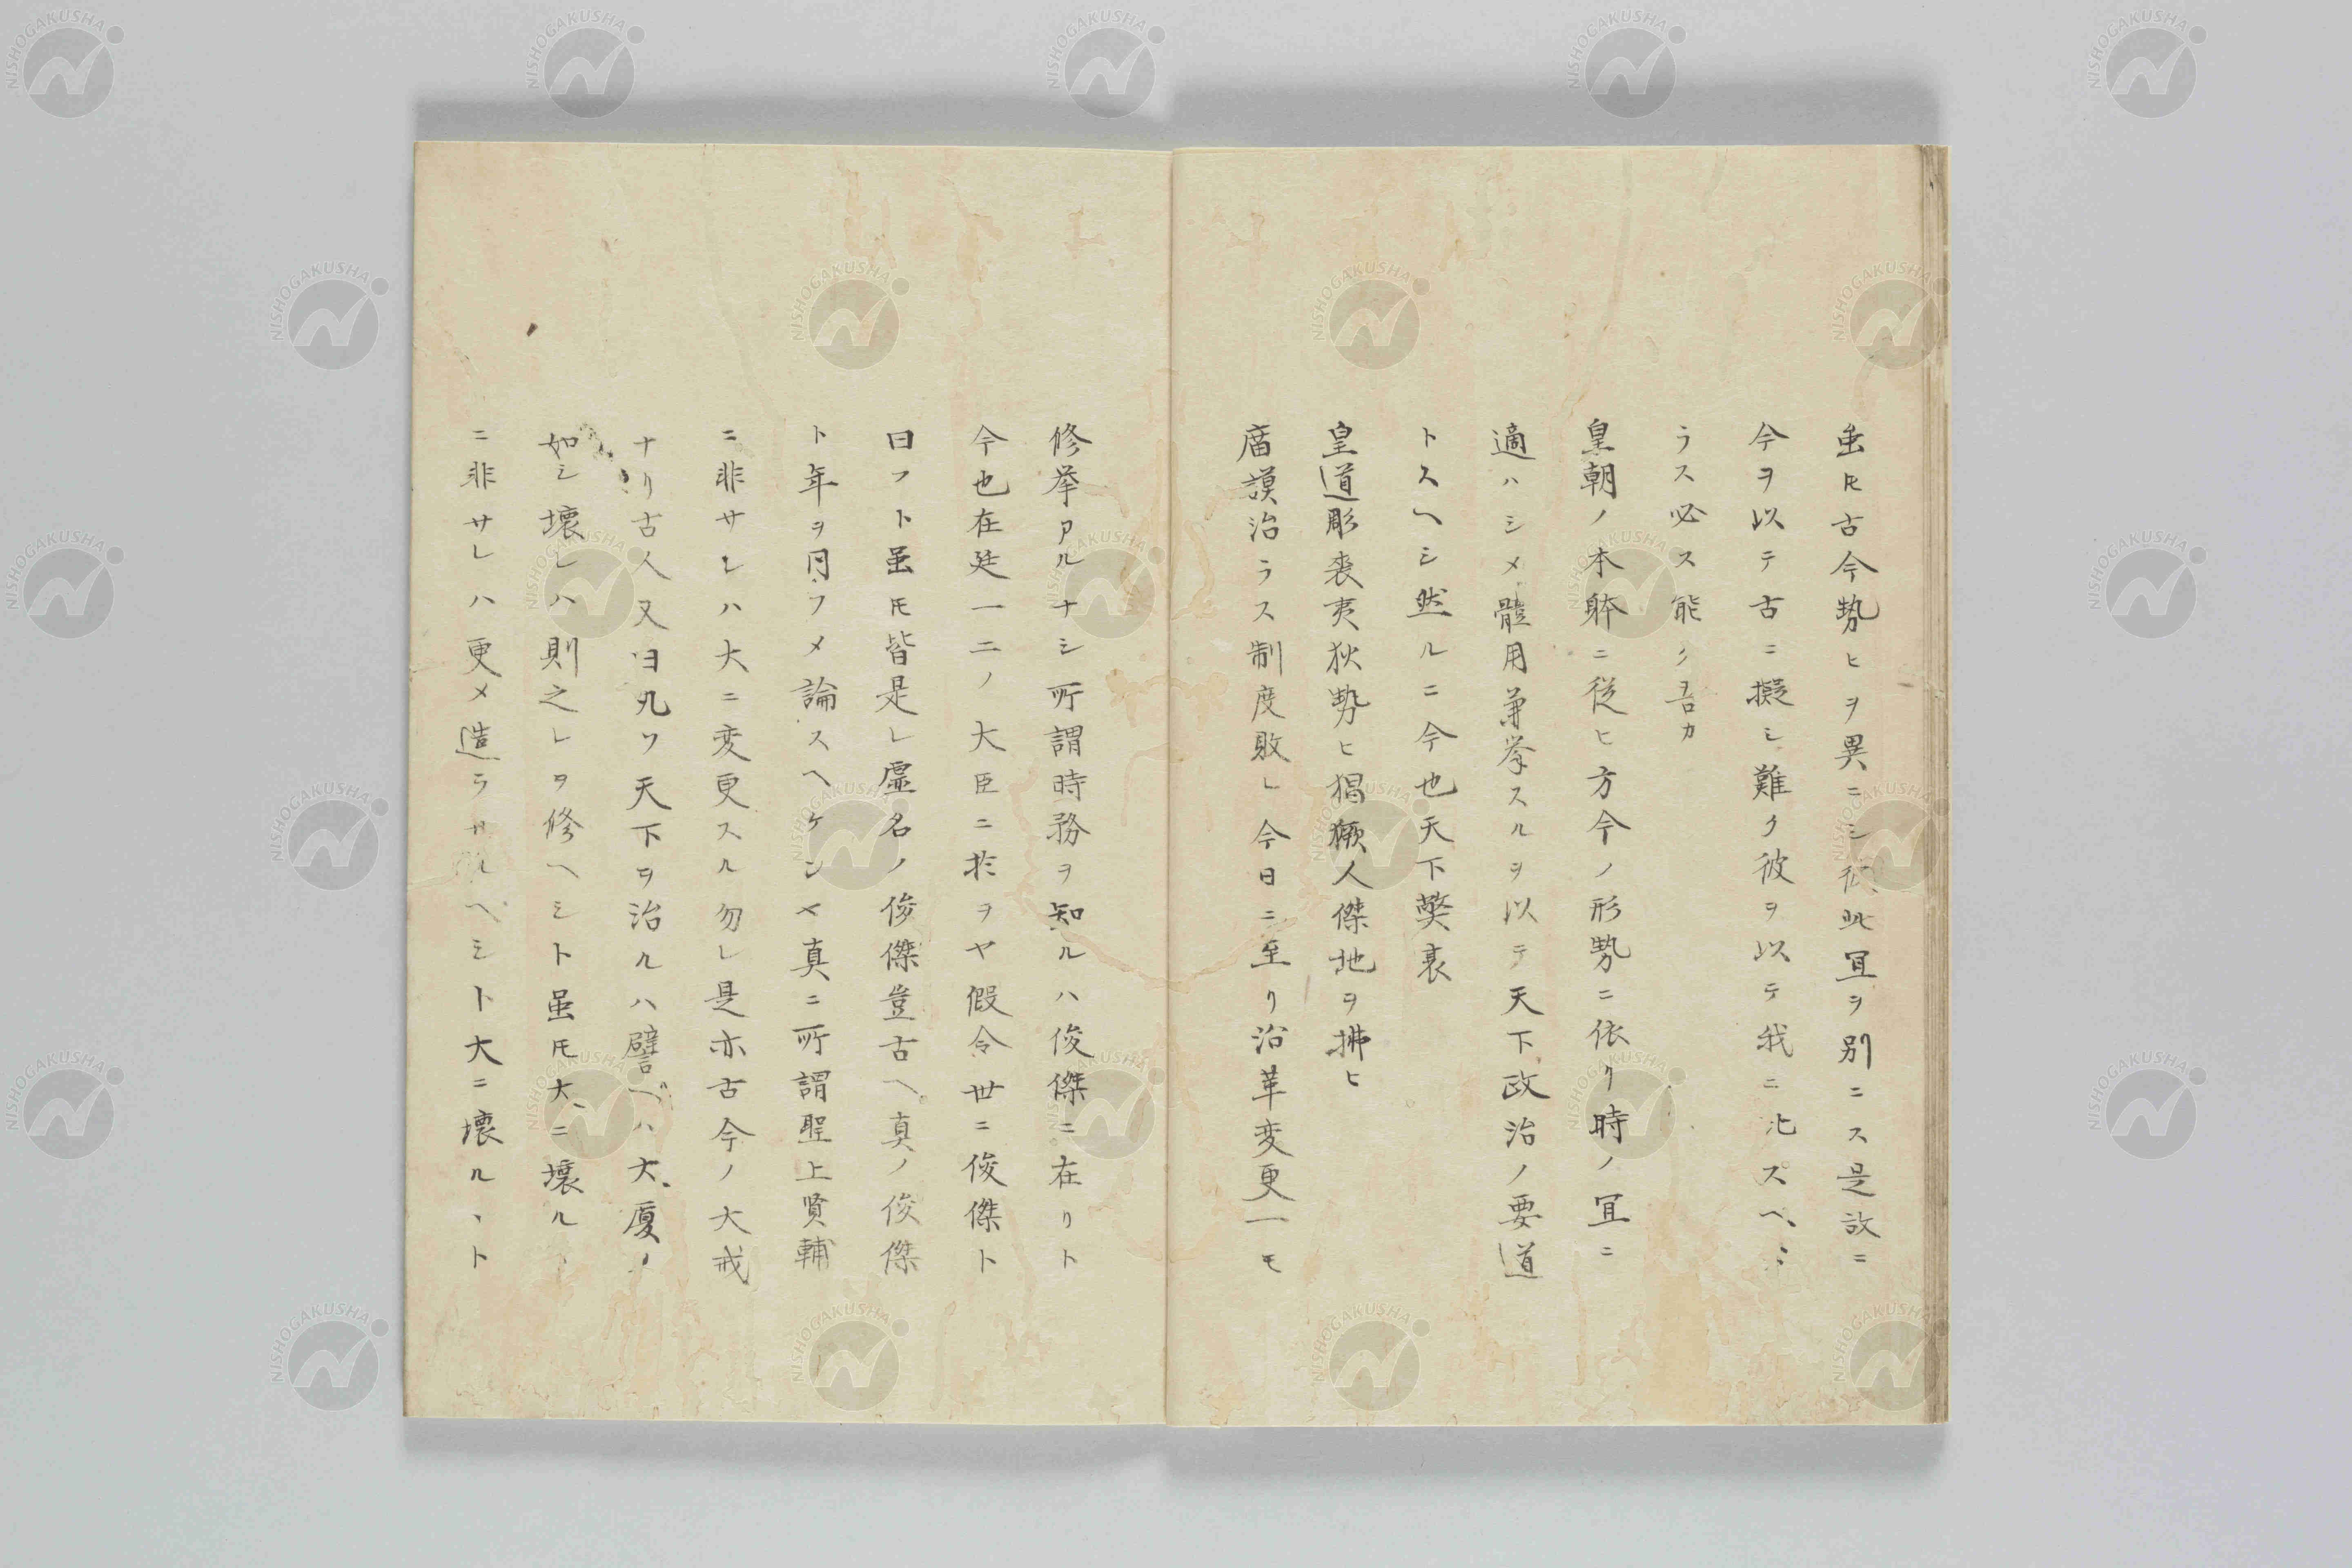 虽𪜈古今勢ヒヲ異ニシ彼此冝ヲ別ニス是故ニ
今ヲ以テ古ニ擬シ難ク彼ヲ以テ我ニ比スヘカ
ラス必ス能ク吾カ
皇朝ノ本躰ニ従ヒ方今ノ形勢ニ依リ時ノ冝ニ
適ハシメ體用兼挙スルヲ以テ天下政治ノ要道
トスヘシ然ルニ今也天下獘衰
皇道彫喪夷狄勢ヒ猖獗人傑地ヲ拂ヒ
庿謨治ラス制度敗レ今日ニ至リ沿革変更一モ
修挙アルナシ所謂時務ヲ知ルハ俊傑ニ在リト
今也在廷一二ノ大臣ニ於ヲヤ假令世ニ俊傑ト
曰フト虽𪜈皆是レ虚名ノ俊傑豈古ヘ真ノ俊傑
ト年ヲ同フメ論スヘケンヤ真ニ所謂聖上賢輔
ニ非サレハ大ニ変更スル勿レ是亦古今ノ大戒
ナリ古人又曰凡ソ天下ヲ治ルハ譬ヘハ大厦ノ
如シ壊レハ則之レヲ修ヘシト虽𪜈大ニ壊ル
ニ非サレハ更メ造ラサルヘシト大ニ壊ルヽト
NISHOGAKUSHA